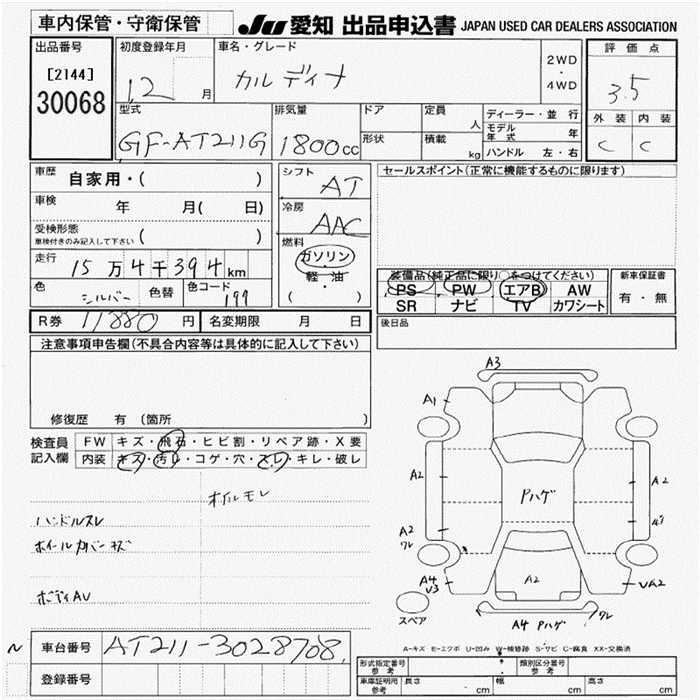 車内保管・守衛保管
JU 愛知 出品申込書 JAPAN USED CAR DEALERS ASSOCIATION
出品番号
[2144]
30068
初度登録年月
12 月
車名・グレード
カルディナ
2WD
・
4WD
評価点
3.5
外装 内装
C C
型式
GF-AT211G
排気量
1800cc
ドア
形状
定員
人
積載
kg
ディーラー・並行
モデル年式 年
ハンドル 左・右
車歴
自家用・( )
車検
年 月( 日)
受検形態
車検付きのみ記入して下さい ( )
走行
15万4千394km
色
シルバー
色替
色コード
199
シフト
AT
冷房
AAC
燃料
ガソリン
軽・油
( )
セールスポイント(正常に機能するものに限ります)
装備品(純正品に限り○をつけてください)
PS PW エアB AW
SR ナビ TV カワシート
新車保証書
有・無
R券 11880 円
名変期限 月 日
後日品
注意事項申告欄(不具合内容等は具体的に記入して下さい)
修復歴 有 (箇所 )
検査員記入欄
FW キズ・飛石・ヒビ割・リペア跡・X要
内装 キズ・汚レ・コゲ・穴・スレ・キレ・破レ
オイルモレ
ハンドルスレ
ホイールカバーキズ
ボディAU
A3
A1
A2
A2
Pハゲ
A2
ワレ
A4
V3
A2
UA2
A4 Pハゲ
ワレ
スペア
A-キズ E-エクボ U-凹み W-補修跡 S-サビ C-腐食 XX-交換済
車台番号
AT211-3028708
登録番号
形式指定番号
参考
類別区分番号
参考
車庫証明用
参考
長さ cm
幅 cm
高さ cm